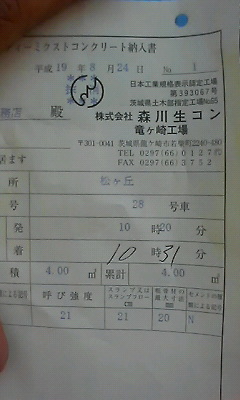 ディーミクストコンクリート納入書
平成 19 年 8 月 24 日 No 1
日本工業規格表示認定工場
第393067号
茨城県土木部指定工場No65
務店 殿
株式会社 森川生コン
竜ヶ崎工場
〒301-0041 茨城県龍ケ崎市若柴町2240-480
TEL 0297(66)0127
FAX 0297(66)3752
居ます
所 松ヶ丘
号 28 号車
発 10 時 20 分
着 10 時 31 分
積 4.00 ㎥ 累計 4.00 ㎥
呼び強度 スランプ又はスランプフロー 粗骨材の最大寸法 セメントの種類による記号
21 21 20 N